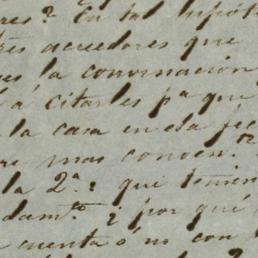 res? En tal hipót
tres acreedores que
es la convinación
á citarles pª que
la casa en ela fec
re mas conven.te
la 2ª: que tenien
dam.to ¿ por qué
cuenta ó no con l